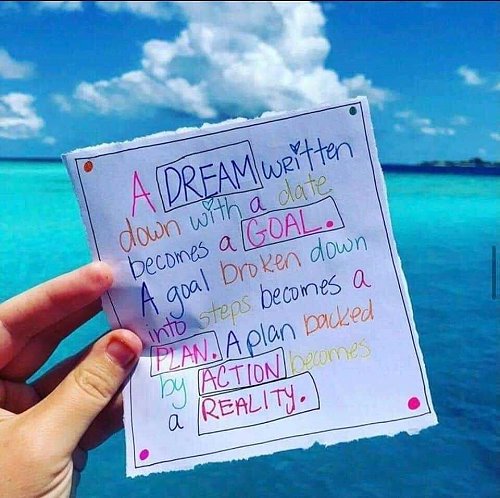 A DREAM written
down with a date
becomes a GOAL.
A goal broken down
into steps becomes a
PLAN. A plan backed
by ACTION becomes
a REALITY.